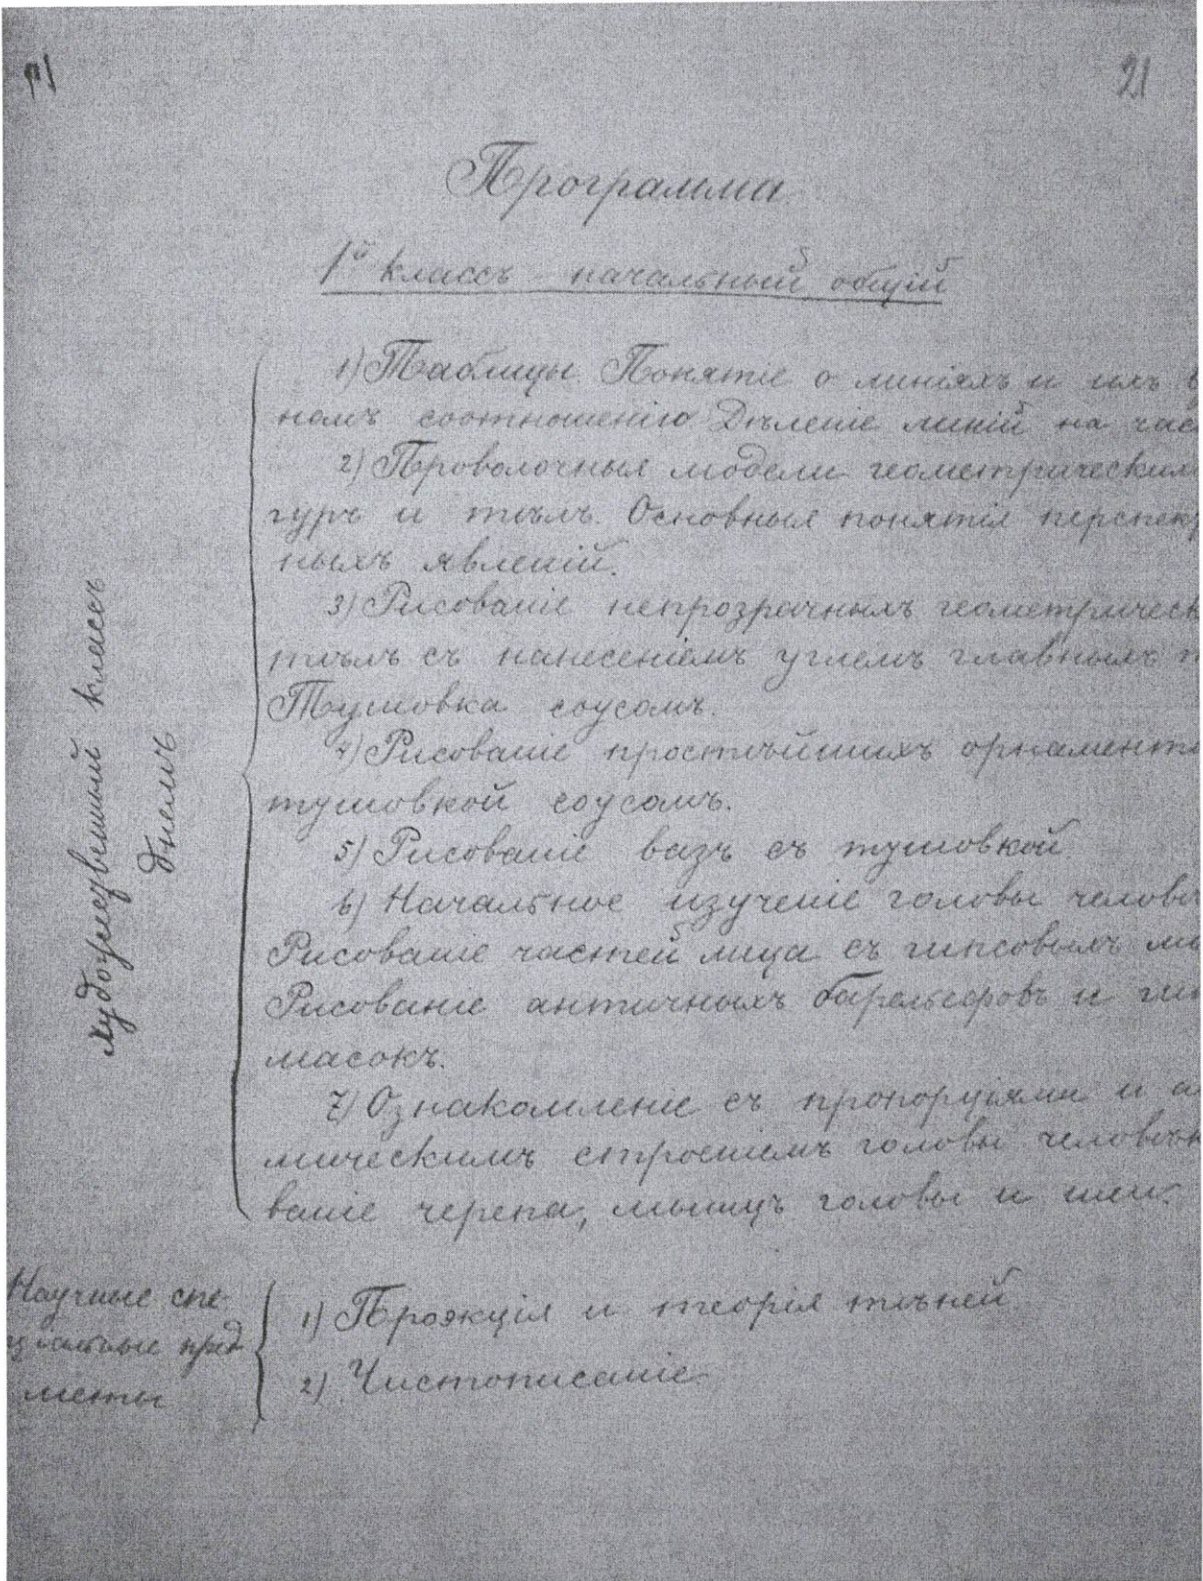 21
Программа.
1й классъ - начальный общій
1) Таблицы. Понятіе о линіяхъ и ихъ
номъ соотношеніи Дѣленіе линій на час
2) Проволочныя модели геометрическихъ
гуръ и тѣлъ. Основныя понятія перспек
ныхъ явленій.
3) Рисованіе непрозрачныхъ геометрическ
тѣлъ съ нанесеніемъ углемъ главныхъ
Тушовка соусомъ.
4) Рисованіе простѣйшихъ орнаменто
тушовкой соусомъ.
5) Рисованіе вазъ съ тушовкой
6) Начальное изученіе головы человѣ
Рисованіе частей лица съ гипсовыхъ
Рисованіе античныхъ барельефовъ и гип
масокъ.
7) Ознакомленіе съ пропорціями и а
мическимъ строеніемъ головы человѣк
ваніе черепа, мышцъ головы и шеи.
Художественный классъ
днемъ
Научные спе
ціальные пред
меты
1) Проэкція и теорія тѣней
2) Чистописаніе.